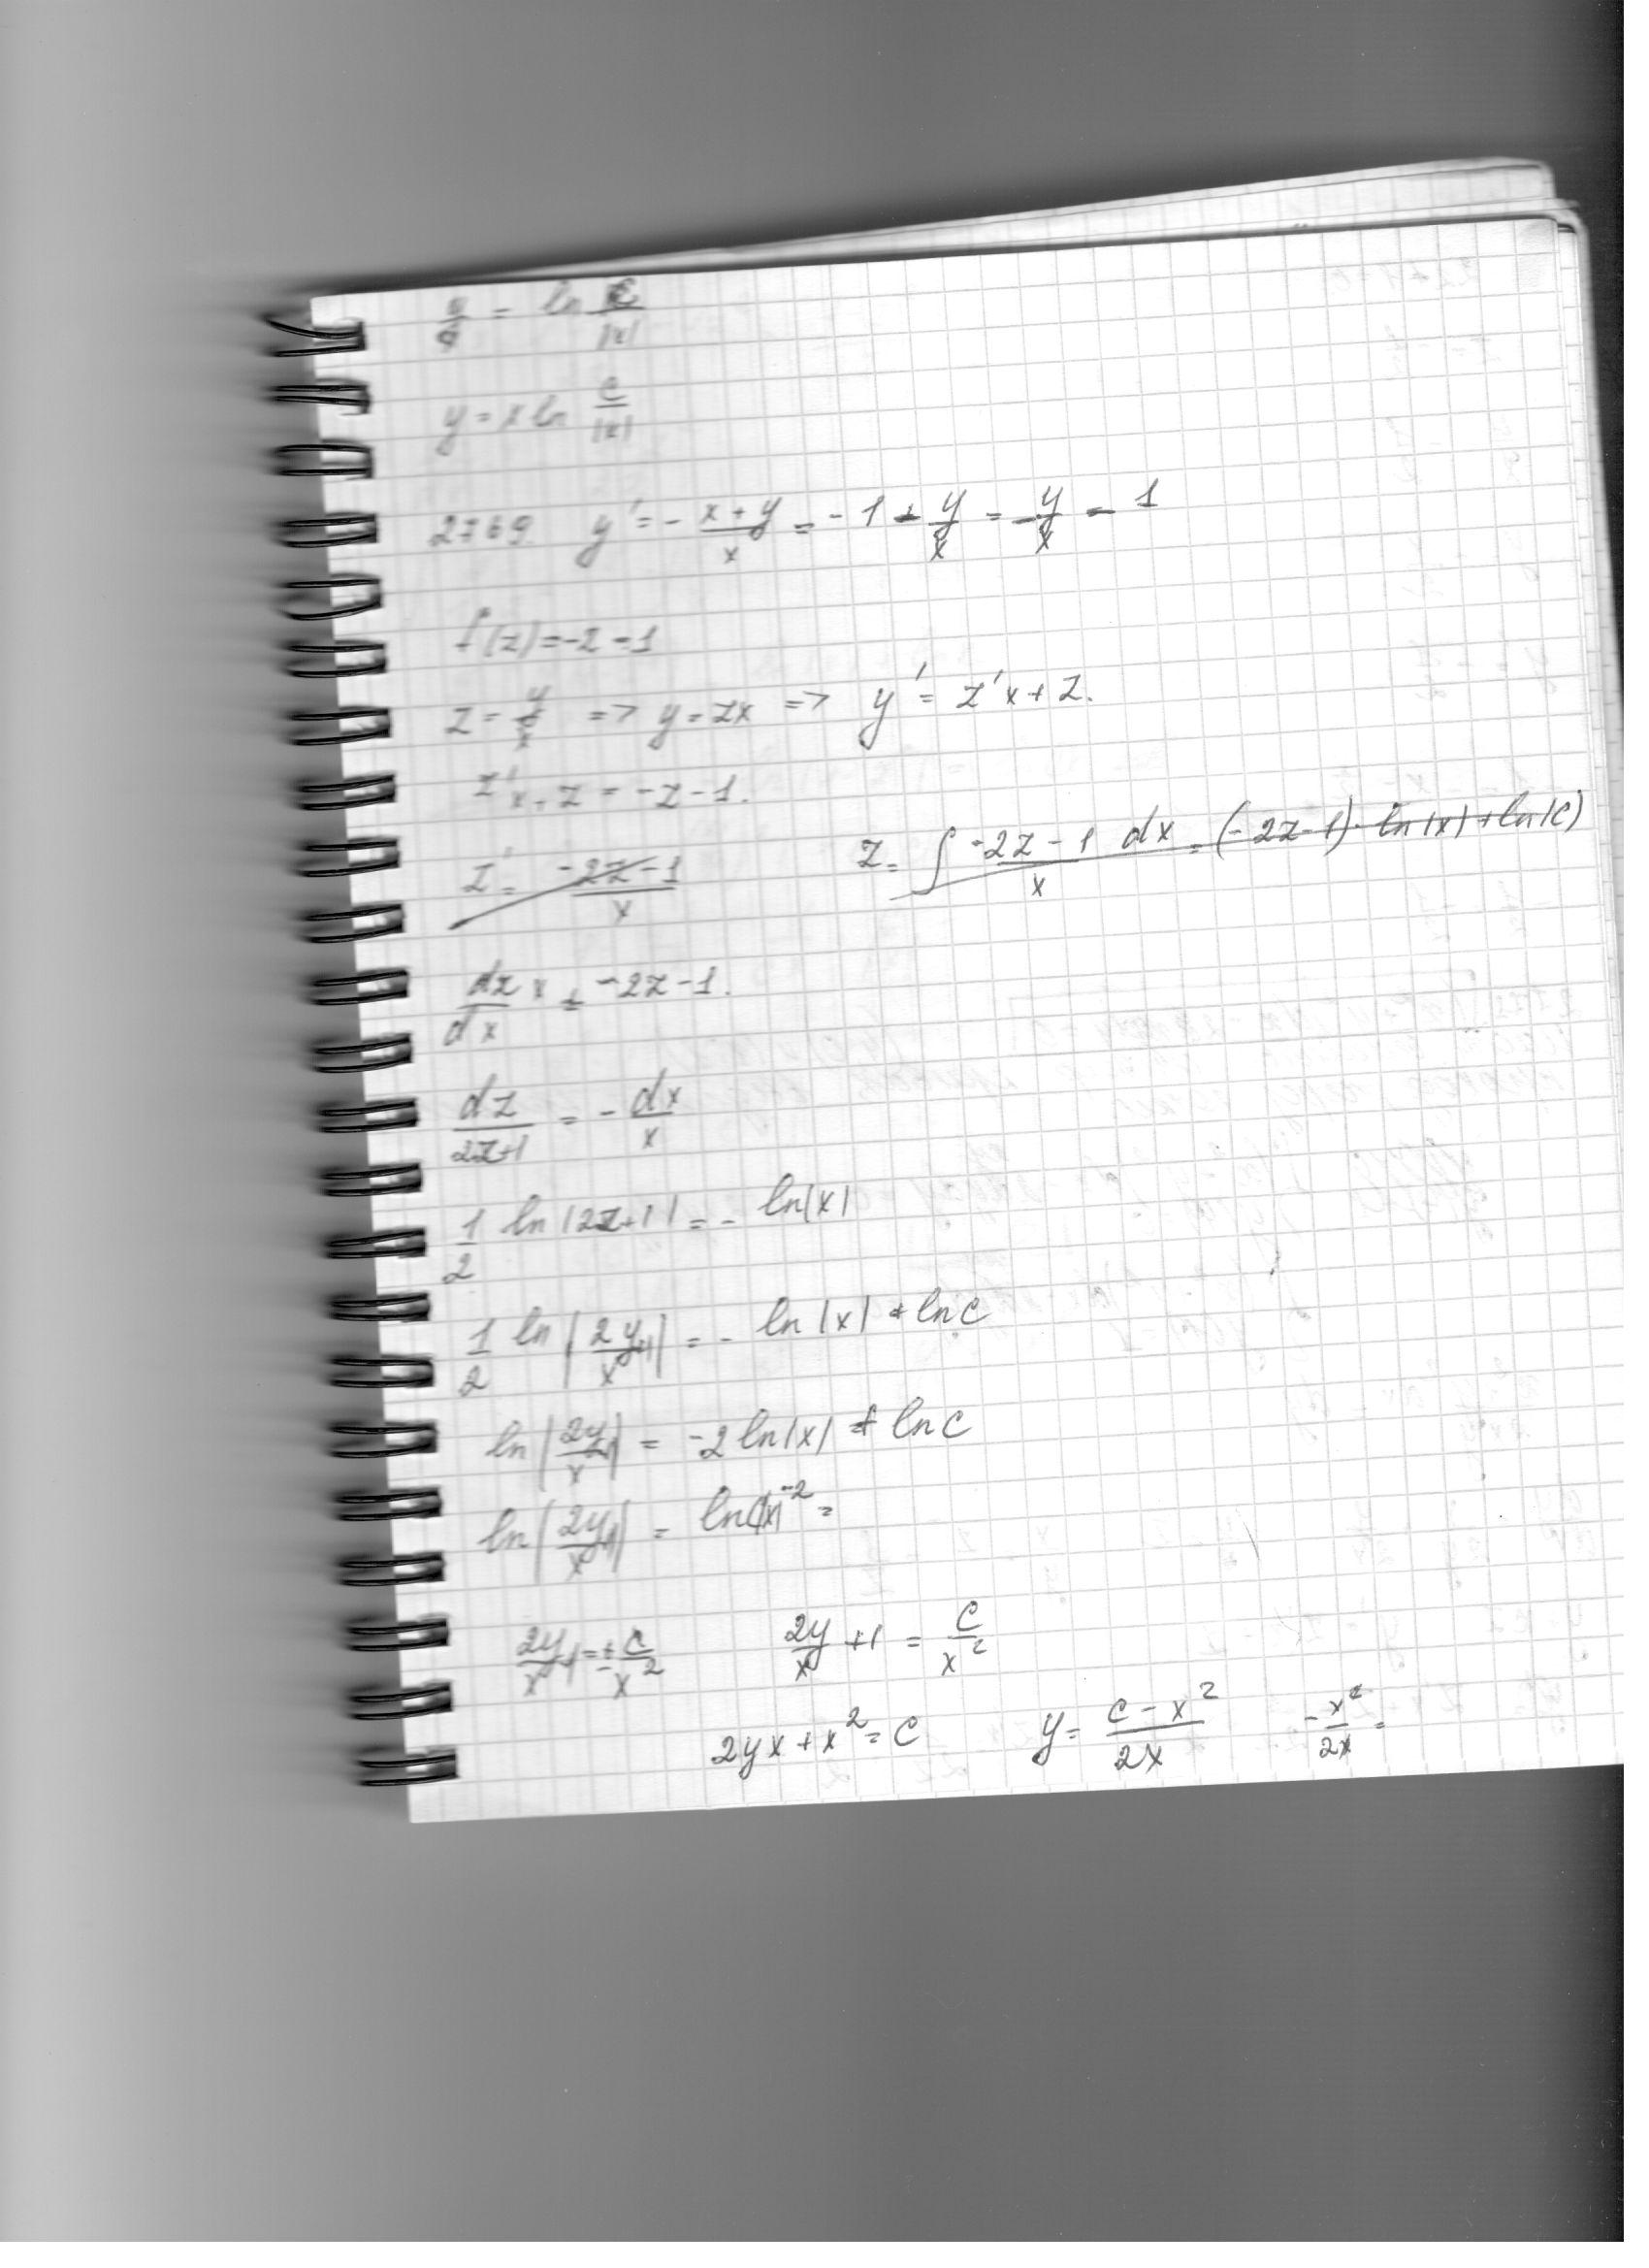 y/x = ln C/|x|
y = x ln C/|x|
2769. y' = - (x+y)/x = -1 - y/x = - y/x - 1
f(z) = -z - 1
z = y/x => y = zx => y' = z'x + z.
z'x + z = -z - 1.
z' = (-2z-1)/x z = ∫ (-2z-1)/x dx = (-2z-1)·ln|x| + ln|C|
dz/dx x = -2z-1.
dz/(2z+1) = - dx/x
1/2 ln|2z+1| = - ln|x|
1/2 ln|2y/x +1| = - ln|x| + ln C
ln|2y/x +1| = -2 ln|x| + ln C
ln|2y/x +1| = ln C|x|^-2 =
2y/x +1 = ± C/x^2 2y/x +1 = C/x^2
2yx + x^2 = C y = (C - x^2)/2x -x^2/2x =